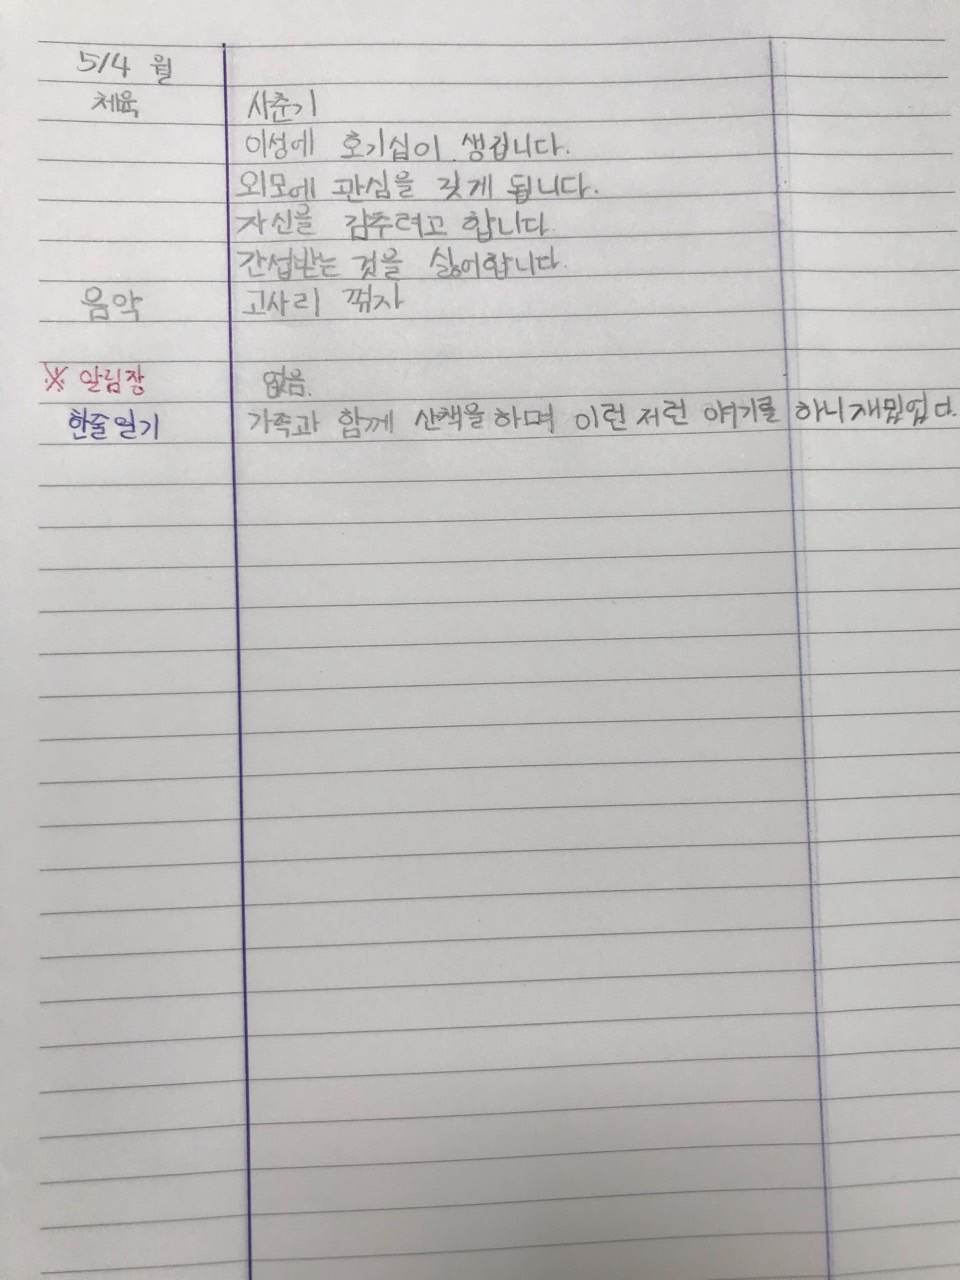 5/4 월
체육 사춘기
이성에 호기심이 생깁니다.
외모에 관심을 갖게 됩니다.
자신을 감추려고 합니다.
간섭받는 것을 싫어합니다.
음악 고사리 꺾자
※ 알림장 없음.
한줄일기 가족과 함께 산책을 하며 이런 저런 얘기를 하니 재밌었다.